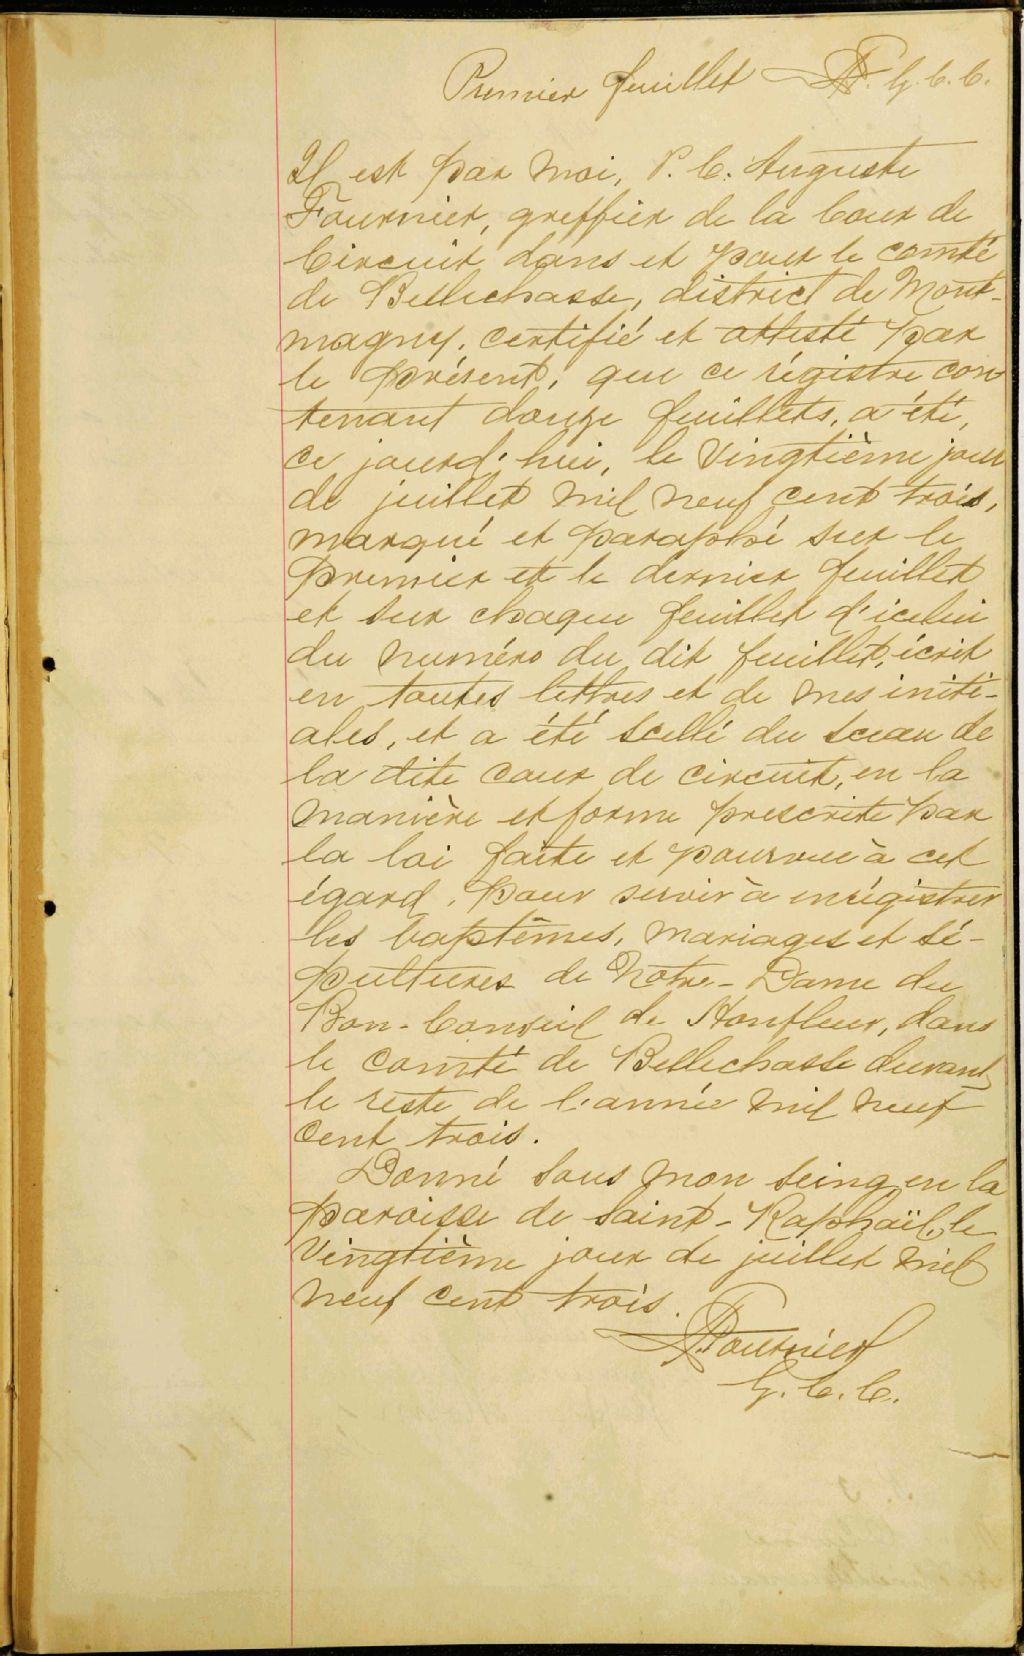 Premier feuillet AF. G. C. C.
Il est par moi, P. C. Auguste
Fournier, greffier de la Cour de
Circuit dans et pour le comté
de Bellechasse, district de Mont-
magny, certifié et attesté par
le présent, que ce régistre con-
tenant douze feuillets, a été,
ce jourd'hui, le vingtième jour
de juillet mil neuf cent trois,
marqué et paraphé sur le
premier et le dernier feuillet
et sur chaque feuillet d'icelui
du numéro du dit feuillet, écrit
en toutes lettres et de mes initi-
ales, et a été scellé du sceau de
la dite cour de circuit, en la
manière et forme prescrite par
la loi faite et pourvue à cet
égard, pour servir à enrégistrer
les baptêmes, mariages et sé-
pultures de Notre-Dame du
Bon-Conseil de Honfleur, dans
le comté de Bellechasse durant
le reste de l'année mil neuf
cent trois.
Donné sous mon seing en la
paroisse de Saint-Raphaël, le
vingtième jour de juillet mil
neuf cent trois.
A Fournier
G. C. C.